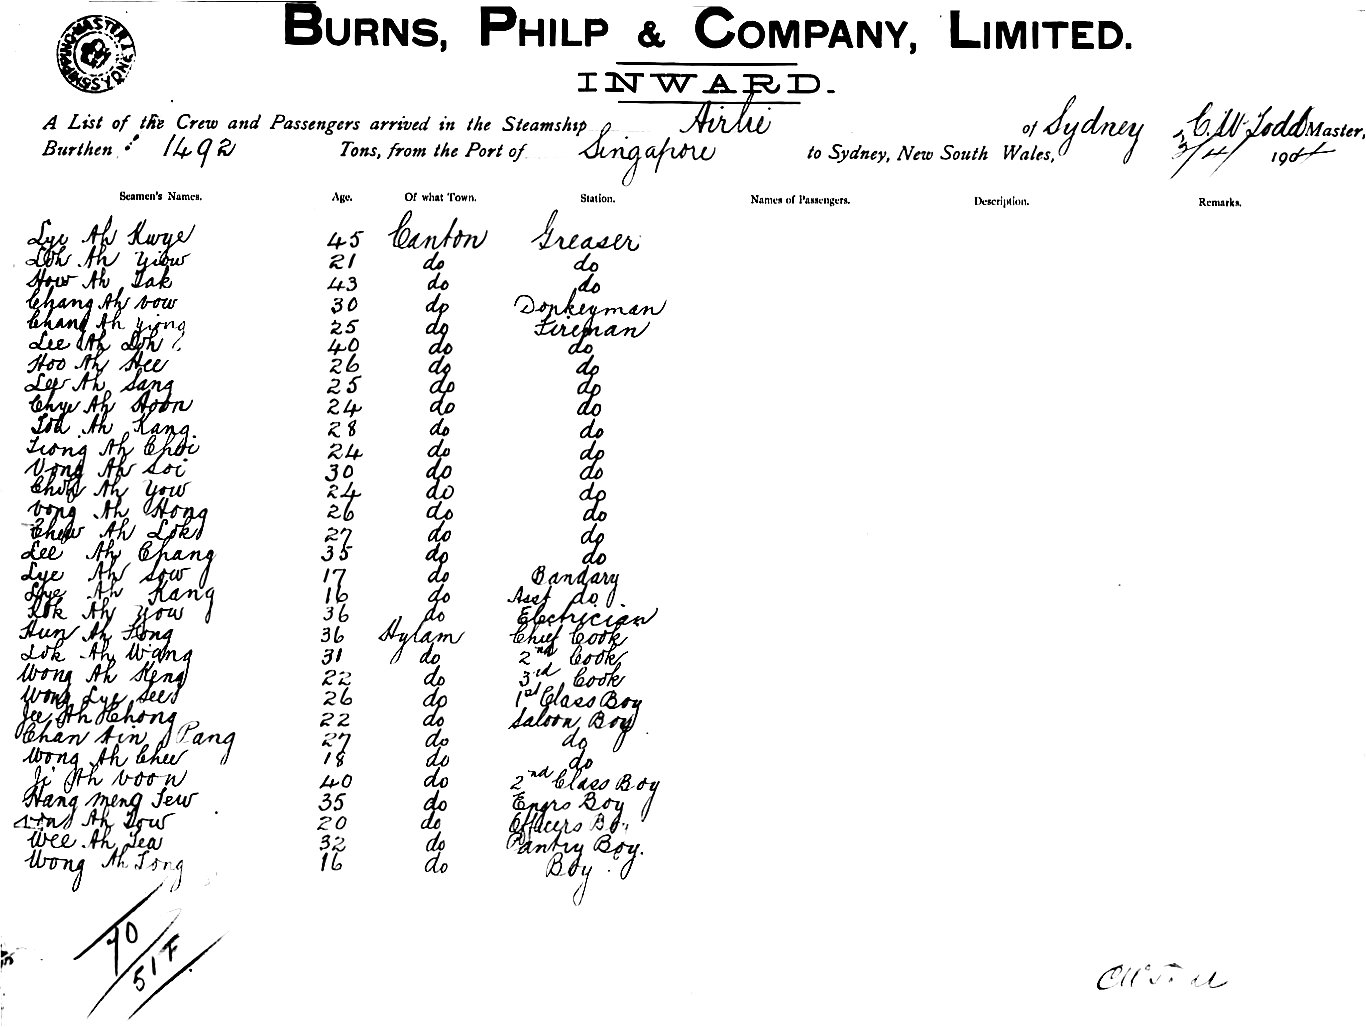 BURNS, PHILP & COMPANY, LIMITED.
INWARD.
A List of the Crew and Passengers arrived in the Steamship Airlie of Sydney C. W. Todd Master,
Burthen 1492 Tons, from the Port of Singapore to Sydney, New South Wales, 3/4/ 1904
Seamen's Names. Age. Of what Town. Station. Names of Passengers. Description. Remarks.
Lye Ah Kwye 45 Canton Greaser
Loh Ah Yiow 21 do do
How Ah Tak 43 do do
Chang Ah vow 30 do Donkeyman
Chang Ah Yiong 25 do Fireman
Lee Ah Loh 40 do do
Hoo Ah Hee 26 do do
Lee Ah Sang 25 do do
Chye Ah Hoon 24 do do
Toh Ah Kang 28 do do
Tiong Ah Choi 24 do do
Vong Ah Soi 30 do do
Ah You 24 do do
Vong Ah Hong 26 do do
Chew Ah Lok 27 do do
Lee Ah Chang 35 do do
Lye Ah Sow 17 do Bandary
Lye Ah Kang 16 do Asst do
Kok Ah You 36 do Electrician
Hun Ah Fong 36 Hylam Chief Cook
Lok Ah Wang 31 do 2nd Cook
Wong Ah Keng 22 do 3rd Cook
Wong Lye See 26 do 1st Class Boy
Jee Ah Chong 22 do Saloon Boy
Chan Ain Pang 27 do do
Wong Ah Chee 18 do do
Ji Ah Voon 40 do 2nd Class Boy
Hang Meng Sew 35 do Engrs Boy
Ah Tow 20 do Officers Boy
Wee Ah Tea 32 do Pantry Boy.
Wong Ah Tong 16 do Boy
70
51 F